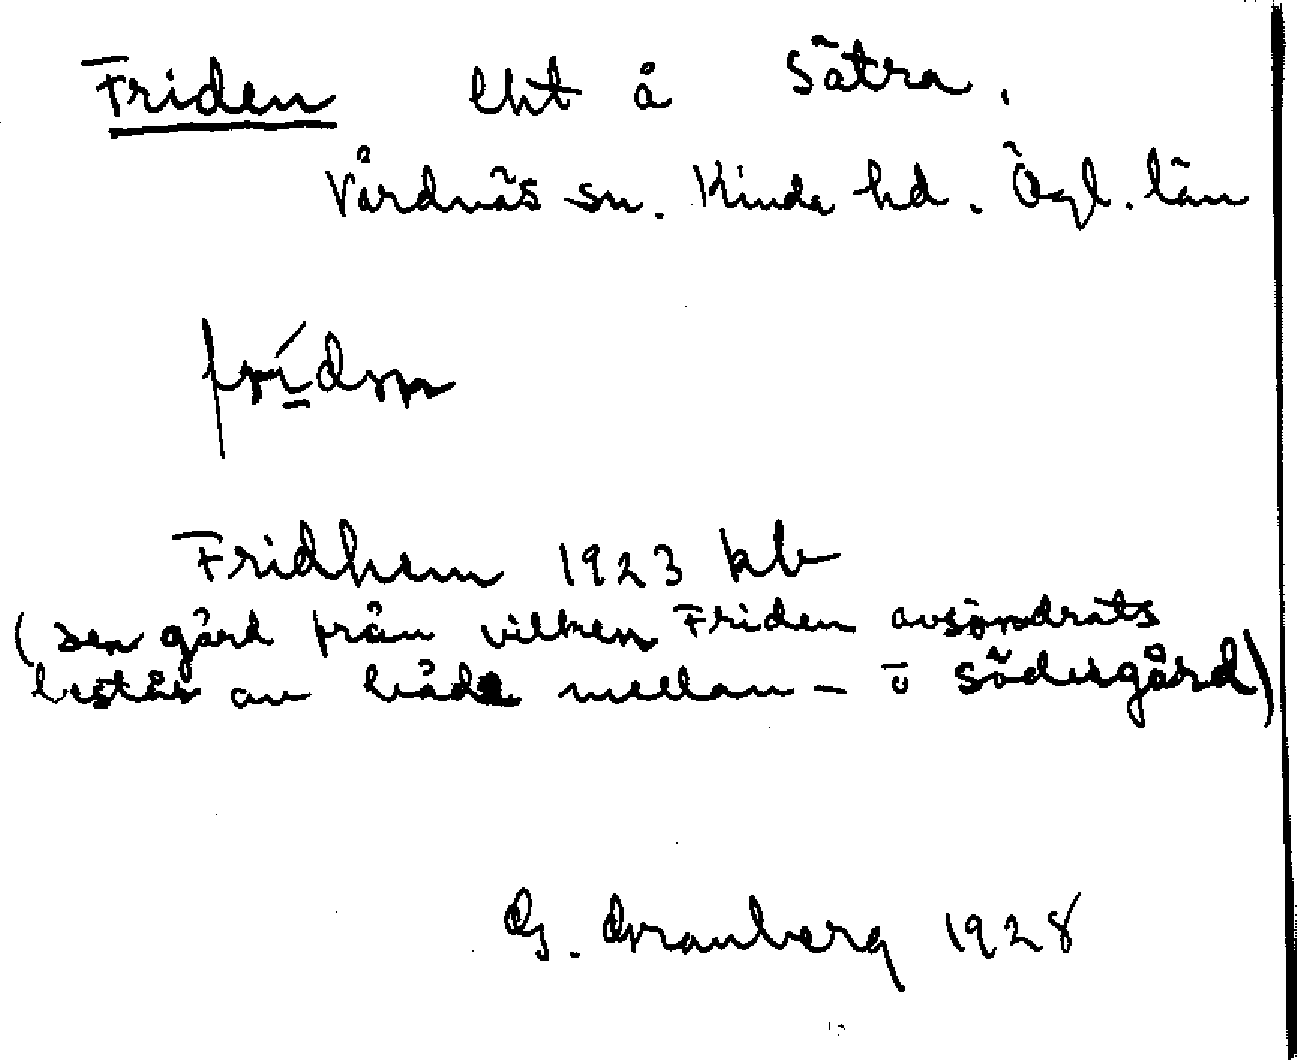 Friden lht å Sätra.
Vårdnäs sn. Kinda hd. Ögl. län
Fridhem 1923 kb
(Den gård från vilken Friden avsöndrats
består av både mellan- o södergård)
G. Granberg 1928